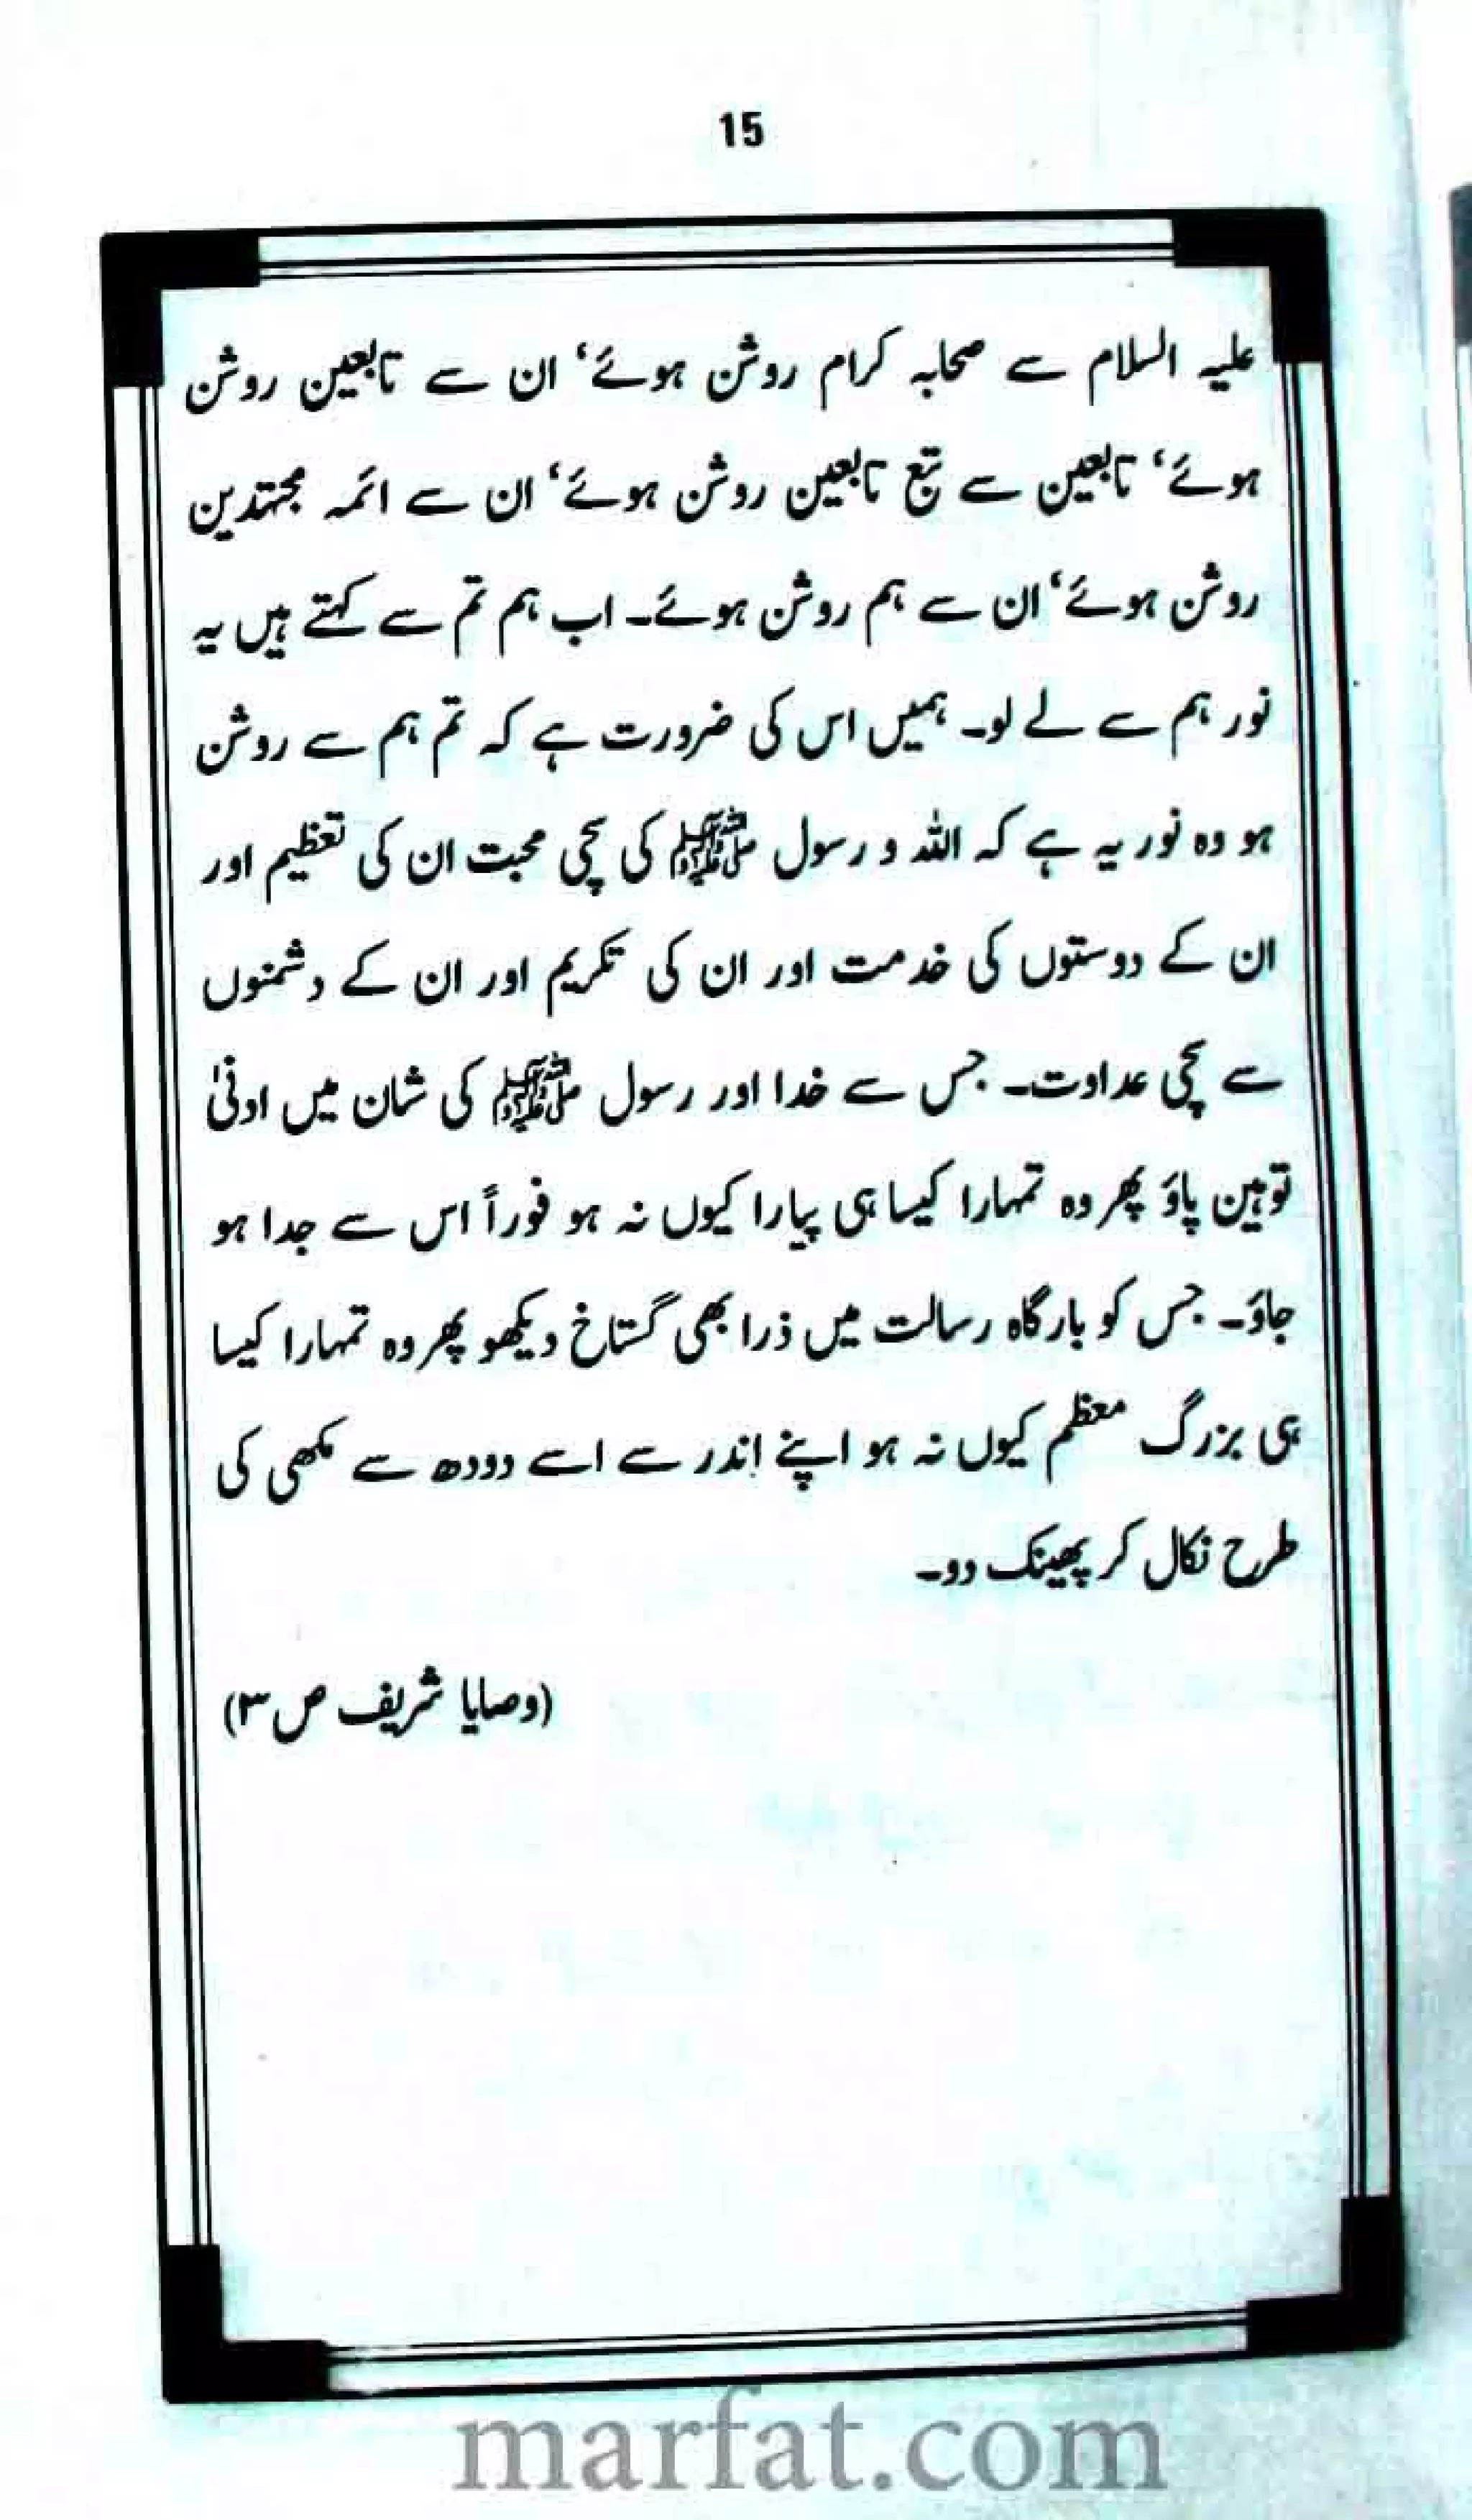 15
علیہ السلام سے صحابہ کرام روشن ہوئے‘ ان سے تابعین روشن
ہوئے‘ تابعین سے تبع تابعین روشن ہوئے‘ ان سے ائمہ مجتہدین
روشن ہوئے‘ ان سے ہم روشن ہوئے۔ اب ہم تم سے کہتے ہیں یہ
نور ہم سے لے لو۔ ہمیں اس کی ضرورت ہے کہ تم ہم سے روشن
ہو وہ نور یہ ہے کہ اللہ و رسول ﷺ کی سچی محبت ان کی تعظیم اور
ان کے دوستوں کی خدمت اور ان کی تکریم اور ان کے دشمنوں
سے سچی عداوت۔ جس سے خدا اور رسول ﷺ کی شان میں ادنیٰ
توہین پاؤ پھر وہ تمہارا کیسا ہی پیارا کیوں نہ ہو فوراً اس سے جدا ہو
جاؤ۔ جس کو بارگاہ رسالت میں ذرا بھی گستاخ دیکھو پھر وہ تمہارا کیسا
ہی بزرگ معظم کیوں نہ ہو اپنے اندر سے اسے دودھ سے مکھی کی
طرح نکال کر پھینک دو۔
(وصایا شریف ص ۳)
marfat.com